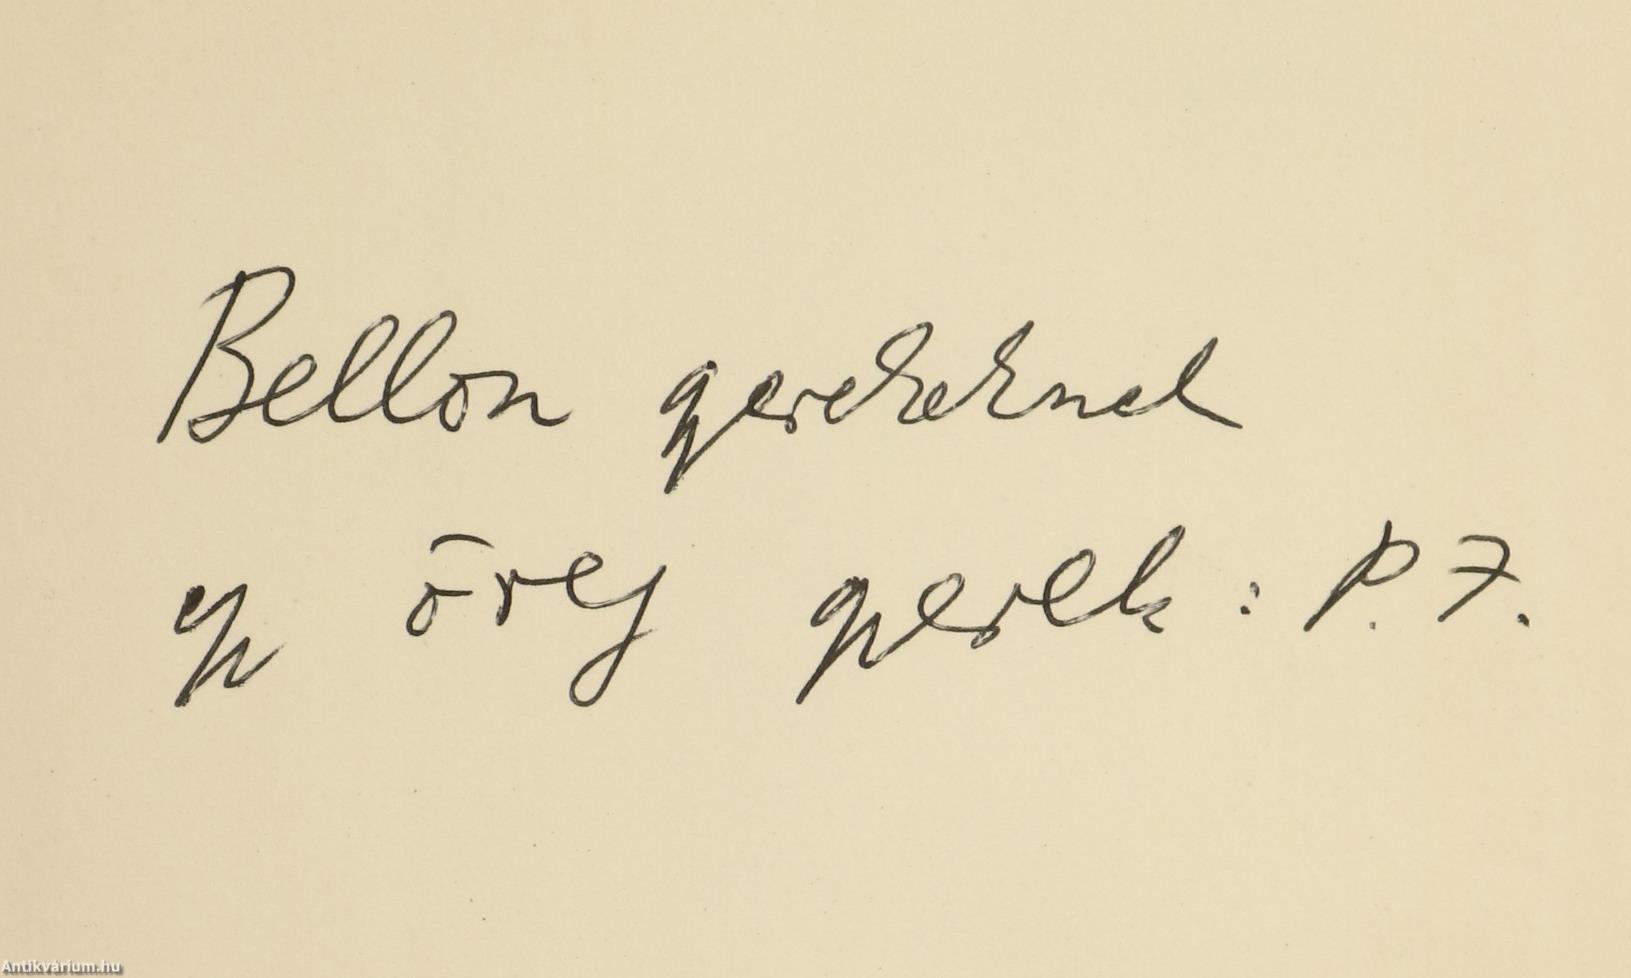 Bellon gyerekeknek
egy öreg gyerek : P. F.
Antikvárium.hu